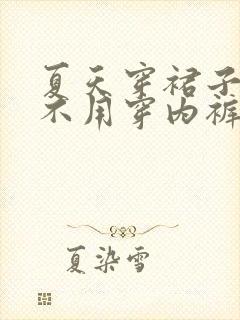 夏天穿裙子
不用穿内裤
夏染雪